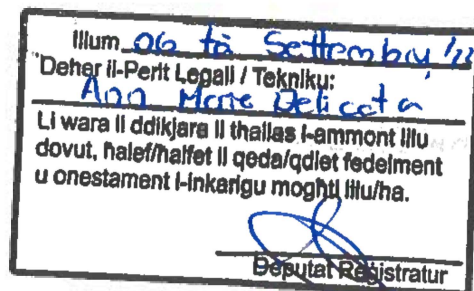 Illum 06 ta Settembru '22
Deher il-Perit Legali / Tekniku:
Ann Marie Delicata
Li wara li ddikjara li tħallas l-ammont lilu
dovut, ħalef/ħalfet li qeda/qdiet fedelment
u onestament l-inkarigu mogħti lilu/ha.
Deputat Reġistratur